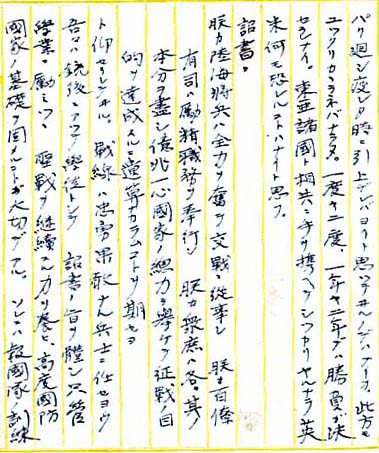 バリ廻シ疲レタ時ニ引上ゲレバヨイト思ッテヰルノデハナイカ。此方モ
ユックリカヽラネバナラヌ。一度ヤ二度、一年ヤ二年デハ勝負ガ決
セラレナイ。東亜諸国ト相共ニ手ヲ携ヘテシッカリヤルナラ英
米何モ恐レルコトハナイト思フ。
詔書ニ
朕カ陸海将兵ハ全力ヲ奮テ交戦ニ従事シ 朕カ百僚
有司ハ励精職務ヲ奉行シ 朕カ衆庶ハ各〻其ノ
本分ヲ盡シ億兆一心國家ノ総力ヲ挙ケテ征戦ノ目
的ヲ達成スルニ遺算ナカラムコトヲ期セヨ
ト仰セラレテヰル。戦線ハ忠勇果敢ナル兵士ニ任セヨウ
吾々ハ銃後ニアツテ學徒トシテ 詔書ノ旨ヲ體シ只管
學業ニ励ミツヽ 聖戦ヲ継續スル力ヲ養ヒ、高度國防
國家ノ基礎ヲ固メルコトガ大切デアル。ソレニハ報國隊ノ訓練